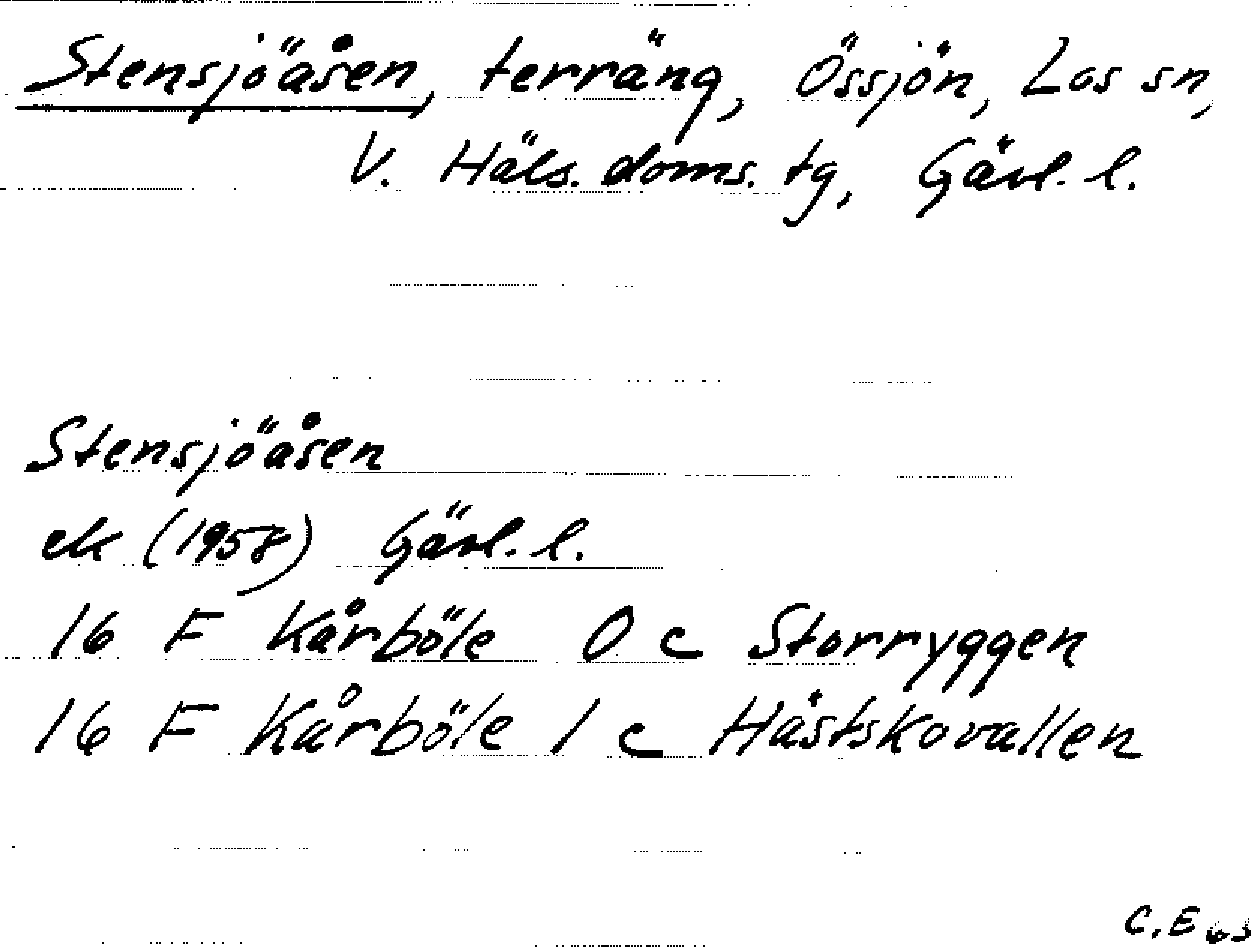 Stensjöåsen, terräng, Össjön, Los sn,
V. Häls. doms. tg, Gävl. l.
Stensjöåsen
ek (1958) Gävl. l.
16 F Kårböle 0 c Storryggen
16 F Kårböle 1 c Hästskovallen
C.E 63